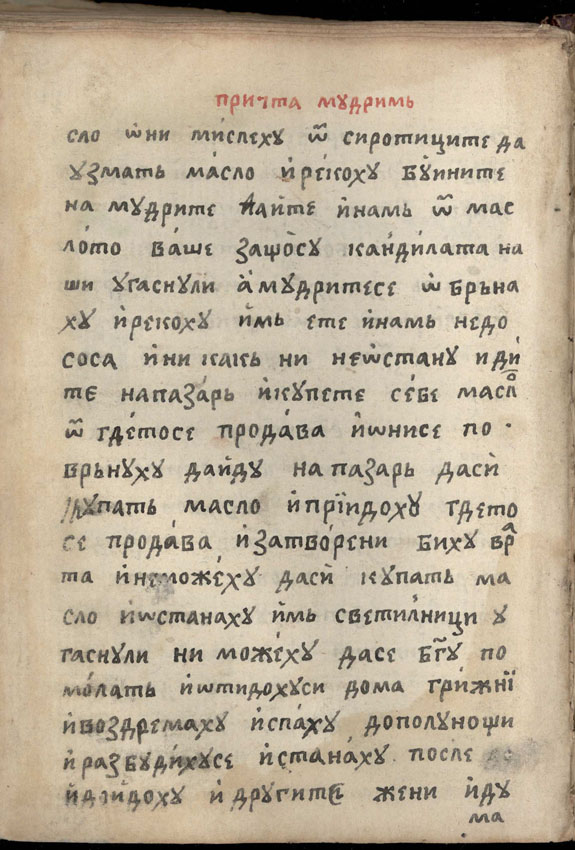 причта мудримь
сло ѡ҆ни ми́слеху ѿ сиротиците да
узмать ма́сло и҆ре́коху бу́ините
на мудрите да́ите и҆намь ѿ мас
ло́то ва́ше защо̀су канди́лата на
ши угаснули а҆мудритесе ѡ҆брьна
ху и҆рекоху и҆мь ете и҆намь недо
соса и҆ни какь ни неѡ҆стану иди́
те напаза́рь и҆купете се́бе масло
ѿ где́тосе прода́ва и҆ѡнисе по
врьнуху даи҆ду на пазарь даси҆
купать масло и҆прїидоху гдето
се прода́ва и҆затво́рени биху вра
та и҆неможе́ху даси҆ купать ма
сло и҆ѡстанаху и҆мь светилници у
гаснули ни може́ху дасе бг҃у по
мо́лать и҆ѡтидохуси дома грижнїи
и҆воздремаху и҆спа́ху дополунощи
и҆разбуди́хусе и҆стана́ху после
и҆дои҆доху и҆ другите жени и҆ду
ма